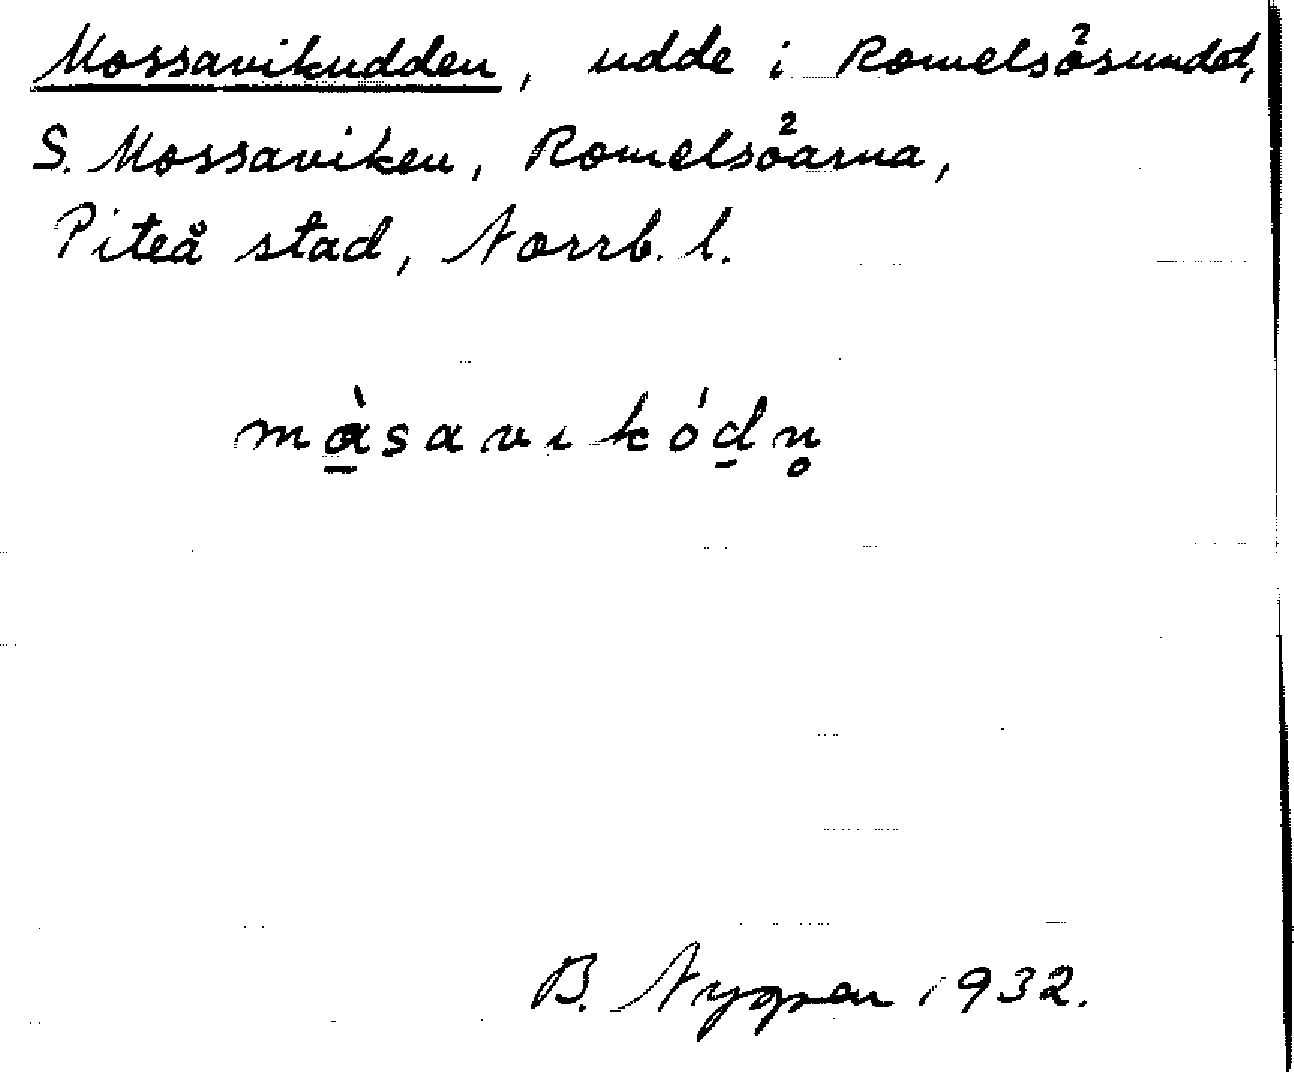 Mossavikudden, udde i Romelsösundet,
S. Mossaviken, Romelsöarna,
Piteå stad, Norrb. l.
mà̱savikód̠n̥
B. Nygren 1932.